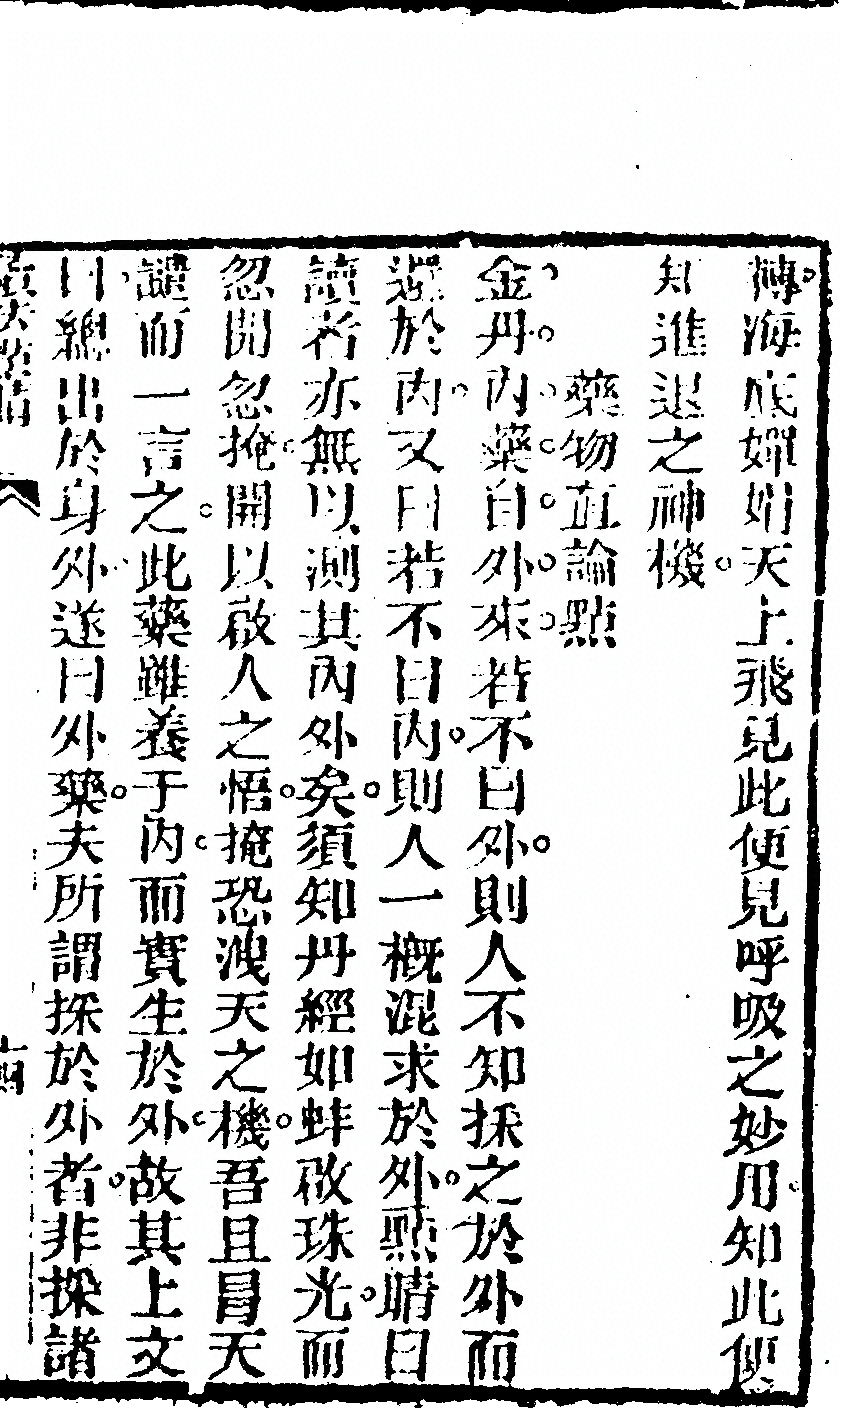 搏海底嬋娟天上飛見此便見呼吸之妙用知此便
知進退之神機
藥物直論點
金丹內藥自外來若不曰外則人不知採之於外而
遯於內又曰若不曰內則人一概混求於外點睛曰
讀者亦無以測其內外矣須知丹經如蚌啟珠光而
忽開忽掩開以啟人之悟掩恐洩天之機吾且冒天
譴而一言之此藥雖養于內而實生於外故其上文
曰總出於身外遂曰外藥夫所謂採於外者非採諸